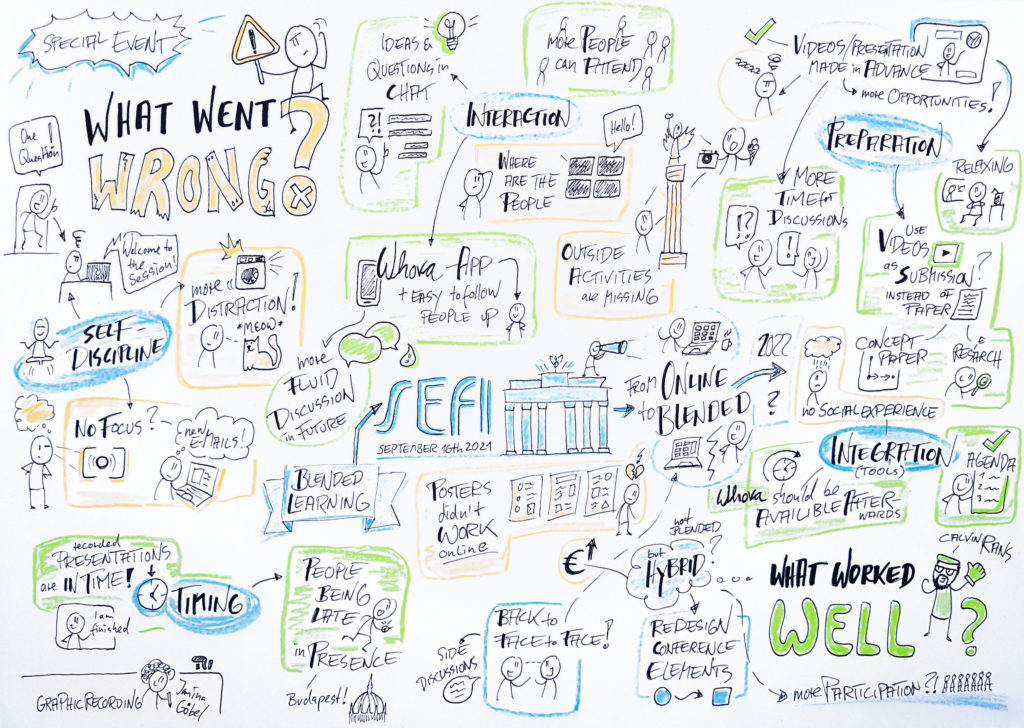 SPECIAL EVENT
WHAT WENT
WRONG?
One
Question!
Welcome to
the
Session!
SELF
DISCIPLINE
more
DISTRACTION!
*MEOW*
NO FOCUS?
new
E-MAILS!
IDEAS &
QUESTIONS in
CHAT
?!
INTERACTION
more PEOPLE
can ATTEND
Hello!
WHERE
ARE THE
PEOPLE
OUTSIDE
ACTIVITIES
are MISSING
WHOVA-APP
+ EASY to follow
PEOPLE UP
more
FLUID
DISCUSSION
in FUTURE
VIDEOS/PRESENTATION
MADE in ADVANCE
more OPPORTUNITIES!
PREPARATION
RELAXING
MORE
TIME for
DISCUSSIONS
!?
!
USE
VIDEOS
as SUBMISSION?
INSTEAD OF
PAPER
CONCEPT
PAPER
RESEARCH
SEFI
SEPTEMBER 16th 2021
BLENDED
LEARNING
FROM ONLINE
to BLENDED?
2022
no SOCIAL EXPERIENCE
INTEGRATION
(TOOLS)
AGENDA
1
2
3
WHOVA should be
AVAILIBLE AFTER-
WARDS
POSTERS
didn't
WORK
online
€
not BLENDED
but
HYBRID!
...
recorded
PRESENTATIONS
are IN TIME!
TIMING
I am
finished
PEOPLE
BEING
LATE
in PRESENCE
Budapest!
BACK to
FACE to FACE!
SIDE
DISCUSSIONS
REDESIGN
CONFERENCE
ELEMENTS
WHAT WORKED
WELL?
CALVIN
RANS
more PARTICIPATION?!
GRAPHIC RECORDING
Janina
Göbel